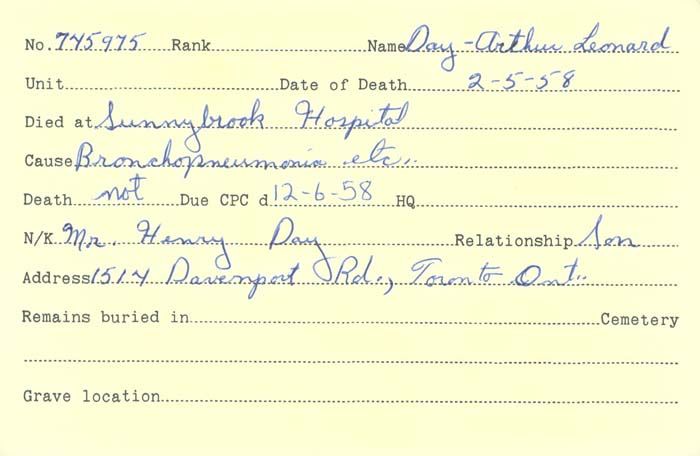 No. 745975 Rank Name Day - Arthur Leonard
Unit Date of Death 2-5-58
Died at Sunnybrook Hospital
Cause Bronchopneumonia etc..
Death not Due CPC d 12-6-58 HQ
N/K Mr. Henry Day Relationship Son
Address 1514 Davenport Rd., Toronto Ont..
Remains buried in Cemetery
Grave location